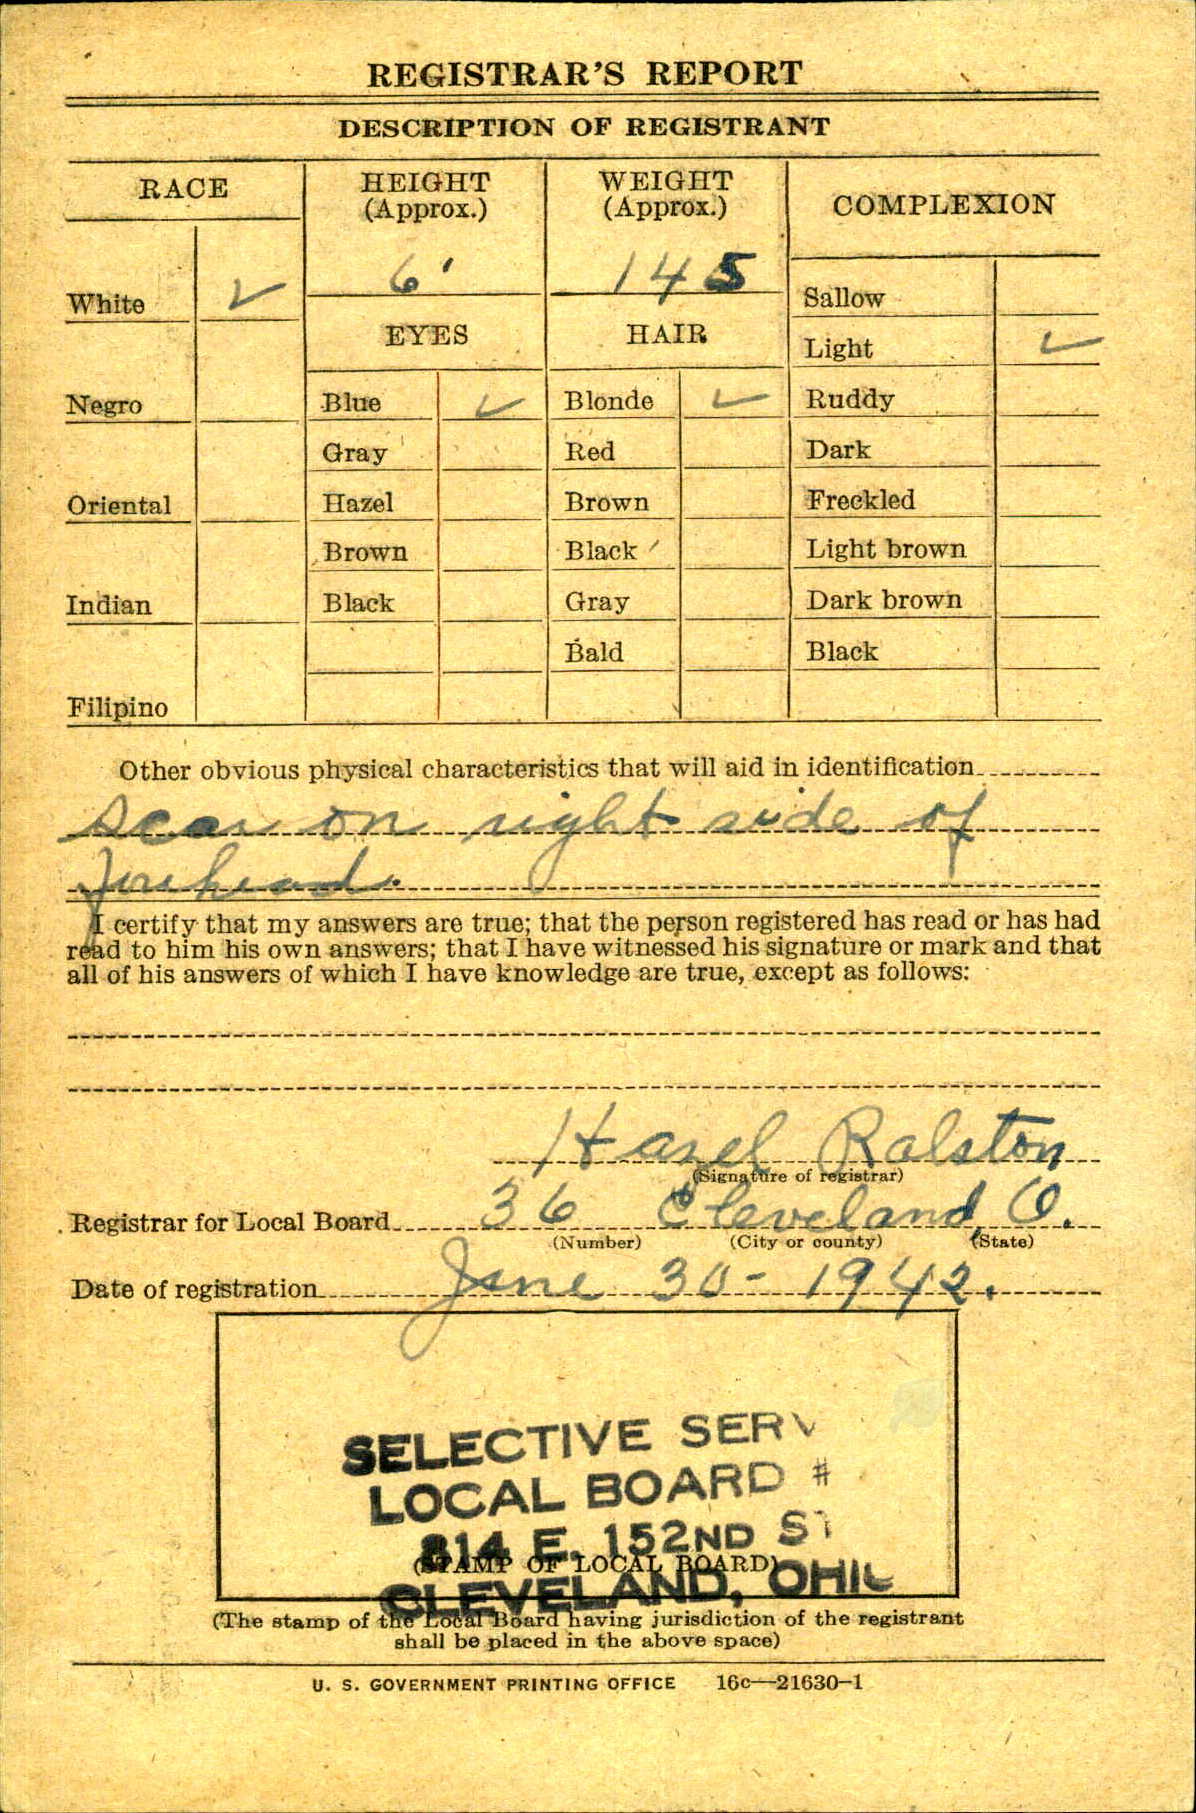 REGISTRAR'S REPORT
DESCRIPTION OF REGISTRANT
RACE
HEIGHT
(Approx.)
WEIGHT
(Approx.)
COMPLEXION
6'
145
White ✓
Sallow
EYES
HAIR
Light ✓
Negro
Blue ✓
Blonde ✓
Ruddy
Gray
Red
Dark
Oriental
Hazel
Brown
Freckled
Brown
Black
Light brown
Indian
Black
Gray
Dark brown
Bald
Black
Filipino
Other obvious physical characteristics that will aid in identification
scar on right side of
forehead.
I certify that my answers are true; that the person registered has read or has had
read to him his own answers; that I have witnessed his signature or mark and that
all of his answers of which I have knowledge are true, except as follows:
Hazel Ralston
(Signature of registrar)
Registrar for Local Board 36 Cleveland, O.
(Number) (City or county) (State)
Date of registration June 30 - 1942.
SELECTIVE SERV
LOCAL BOARD #
814 E. 152ND ST
(STAMP OF LOCAL BOARD)
CLEVELAND, OHIO
(The stamp of the Local Board having jurisdiction of the registrant
shall be placed in the above space)
U. S. GOVERNMENT PRINTING OFFICE 16c—21630-1